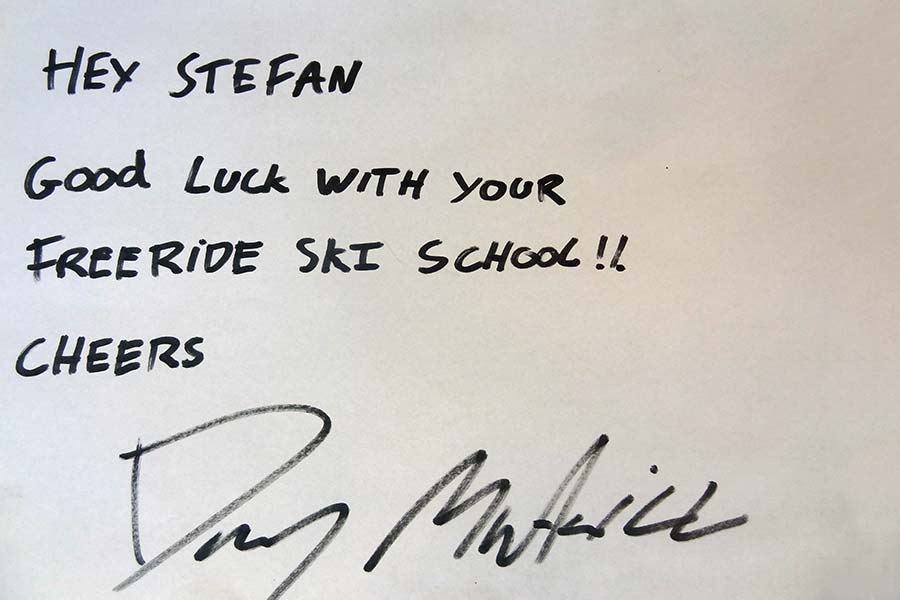 HEY STEFAN
Good LUCK WITH YOUR
FREERIDE SKI SCHOOL!!
CHEERS